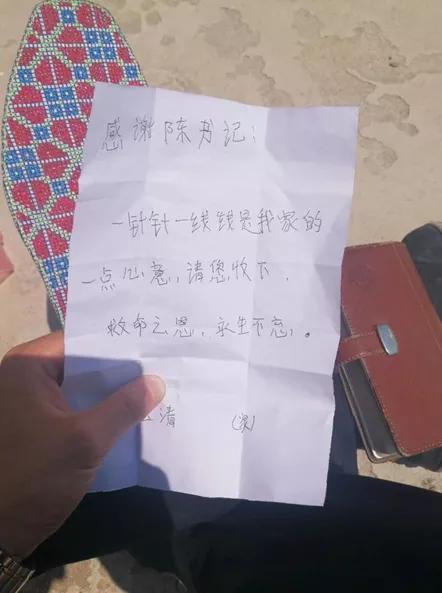 感谢陈书记：
一针针一线线是我家的
一点心意，请您收下．
救命之恩，永生不忘，。
清